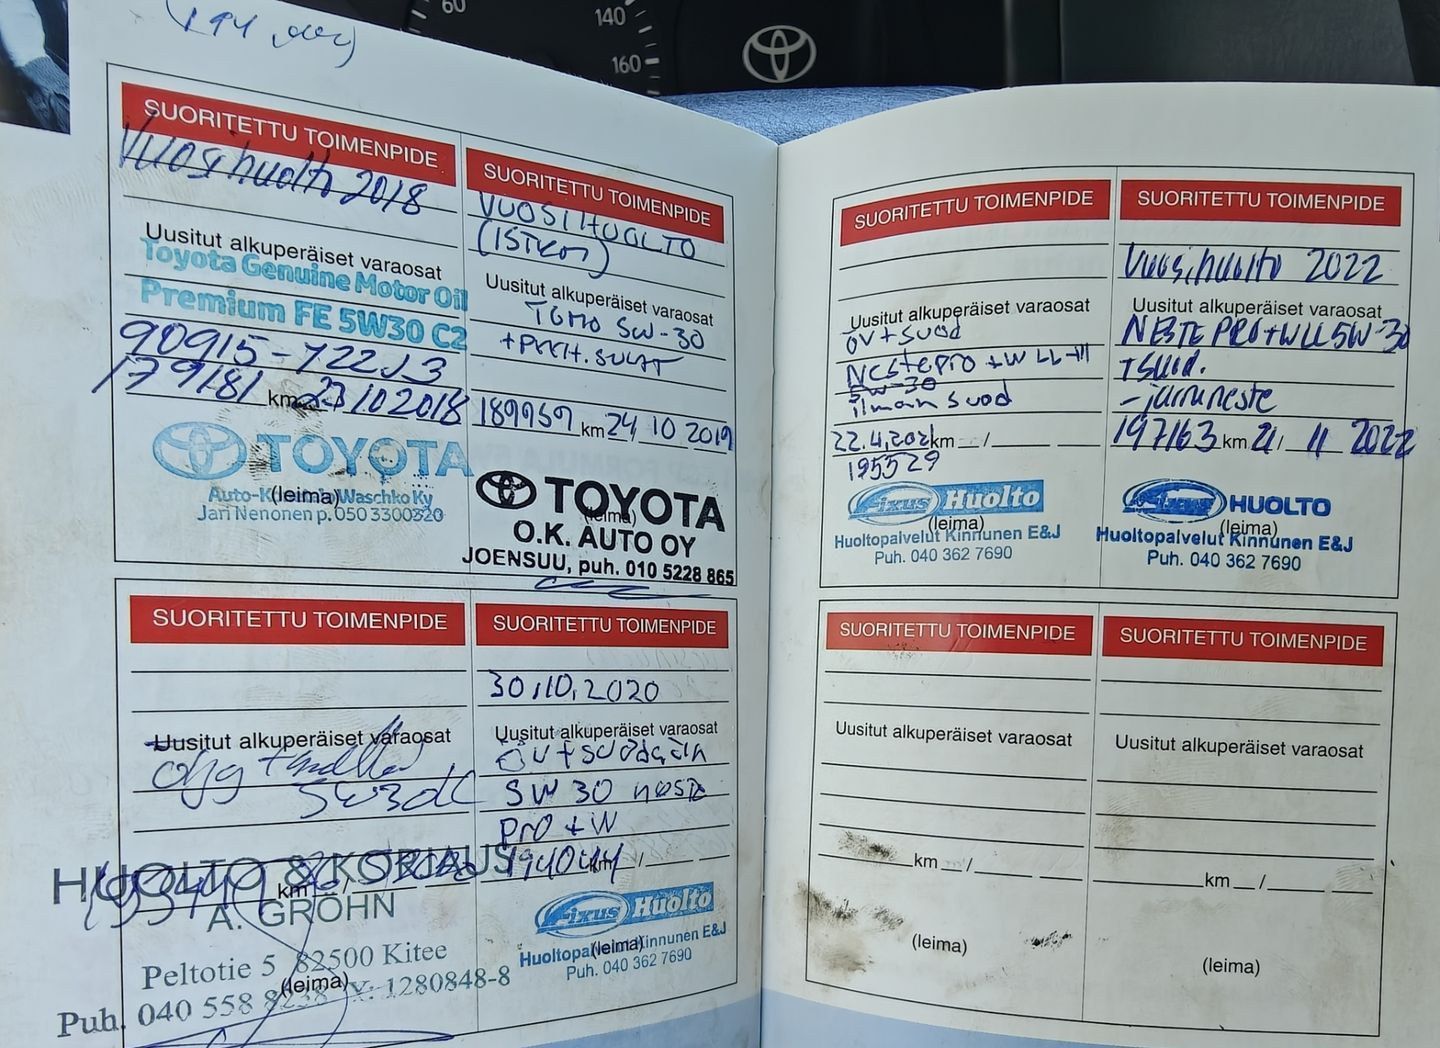 60
140
160
SUORITETTU TOIMENPIDE
Vuosihuolto 2018
Uusitut alkuperäiset varaosat
Toyota Genuine Motor Oil
Premium FE 5W30 C2
90915-YZZJ3
179181 km 23/10 2018
TOYOTA
(leima)
Auto-K Waschko Ky
Jari Nenonen p. 050 3300320
SUORITETTU TOIMENPIDE
VUOSIHUOLTO
Uusitut alkuperäiset varaosat
5W-30
189959 km 24/10 2019
TOYOTA
(leima)
O.K. AUTO OY
JOENSUU, puh. 010 5228 865
SUORITETTU TOIMENPIDE
Uusitut alkuperäiset varaosat
km
HUOLTO & KORJAUS
A. GRÖHN
Peltotie 5 82500 Kitee
(leima)
Puh. 040 558 8238 Y: 1280848-8
SUORITETTU TOIMENPIDE
30.10.2020
Uusitut alkuperäiset varaosat
5W 30 neste
pro +W
194044 km /
Fixus Huolto
(leima)
Huoltopalvelut Kinnunen E&J
Puh. 040 362 7690
SUORITETTU TOIMENPIDE
Uusitut alkuperäiset varaosat
öv + suod
Neste pro +W LL-III
5W-30
ilman suod
22.4.2021 km /
195529
Fixus Huolto
(leima)
Huoltopalvelut Kinnunen E&J
Puh. 040 362 7690
SUORITETTU TOIMENPIDE
Vuosihuolto 2022
Uusitut alkuperäiset varaosat
NESTE PRO+W LL 5W-30
+suod.
-jarruneste
197163 km 21/ 11 2022
Fixus HUOLTO
(leima)
Huoltopalvelut Kinnunen E&J
Puh. 040 362 7690
SUORITETTU TOIMENPIDE
Uusitut alkuperäiset varaosat
km /
(leima)
SUORITETTU TOIMENPIDE
Uusitut alkuperäiset varaosat
km /
(leima)